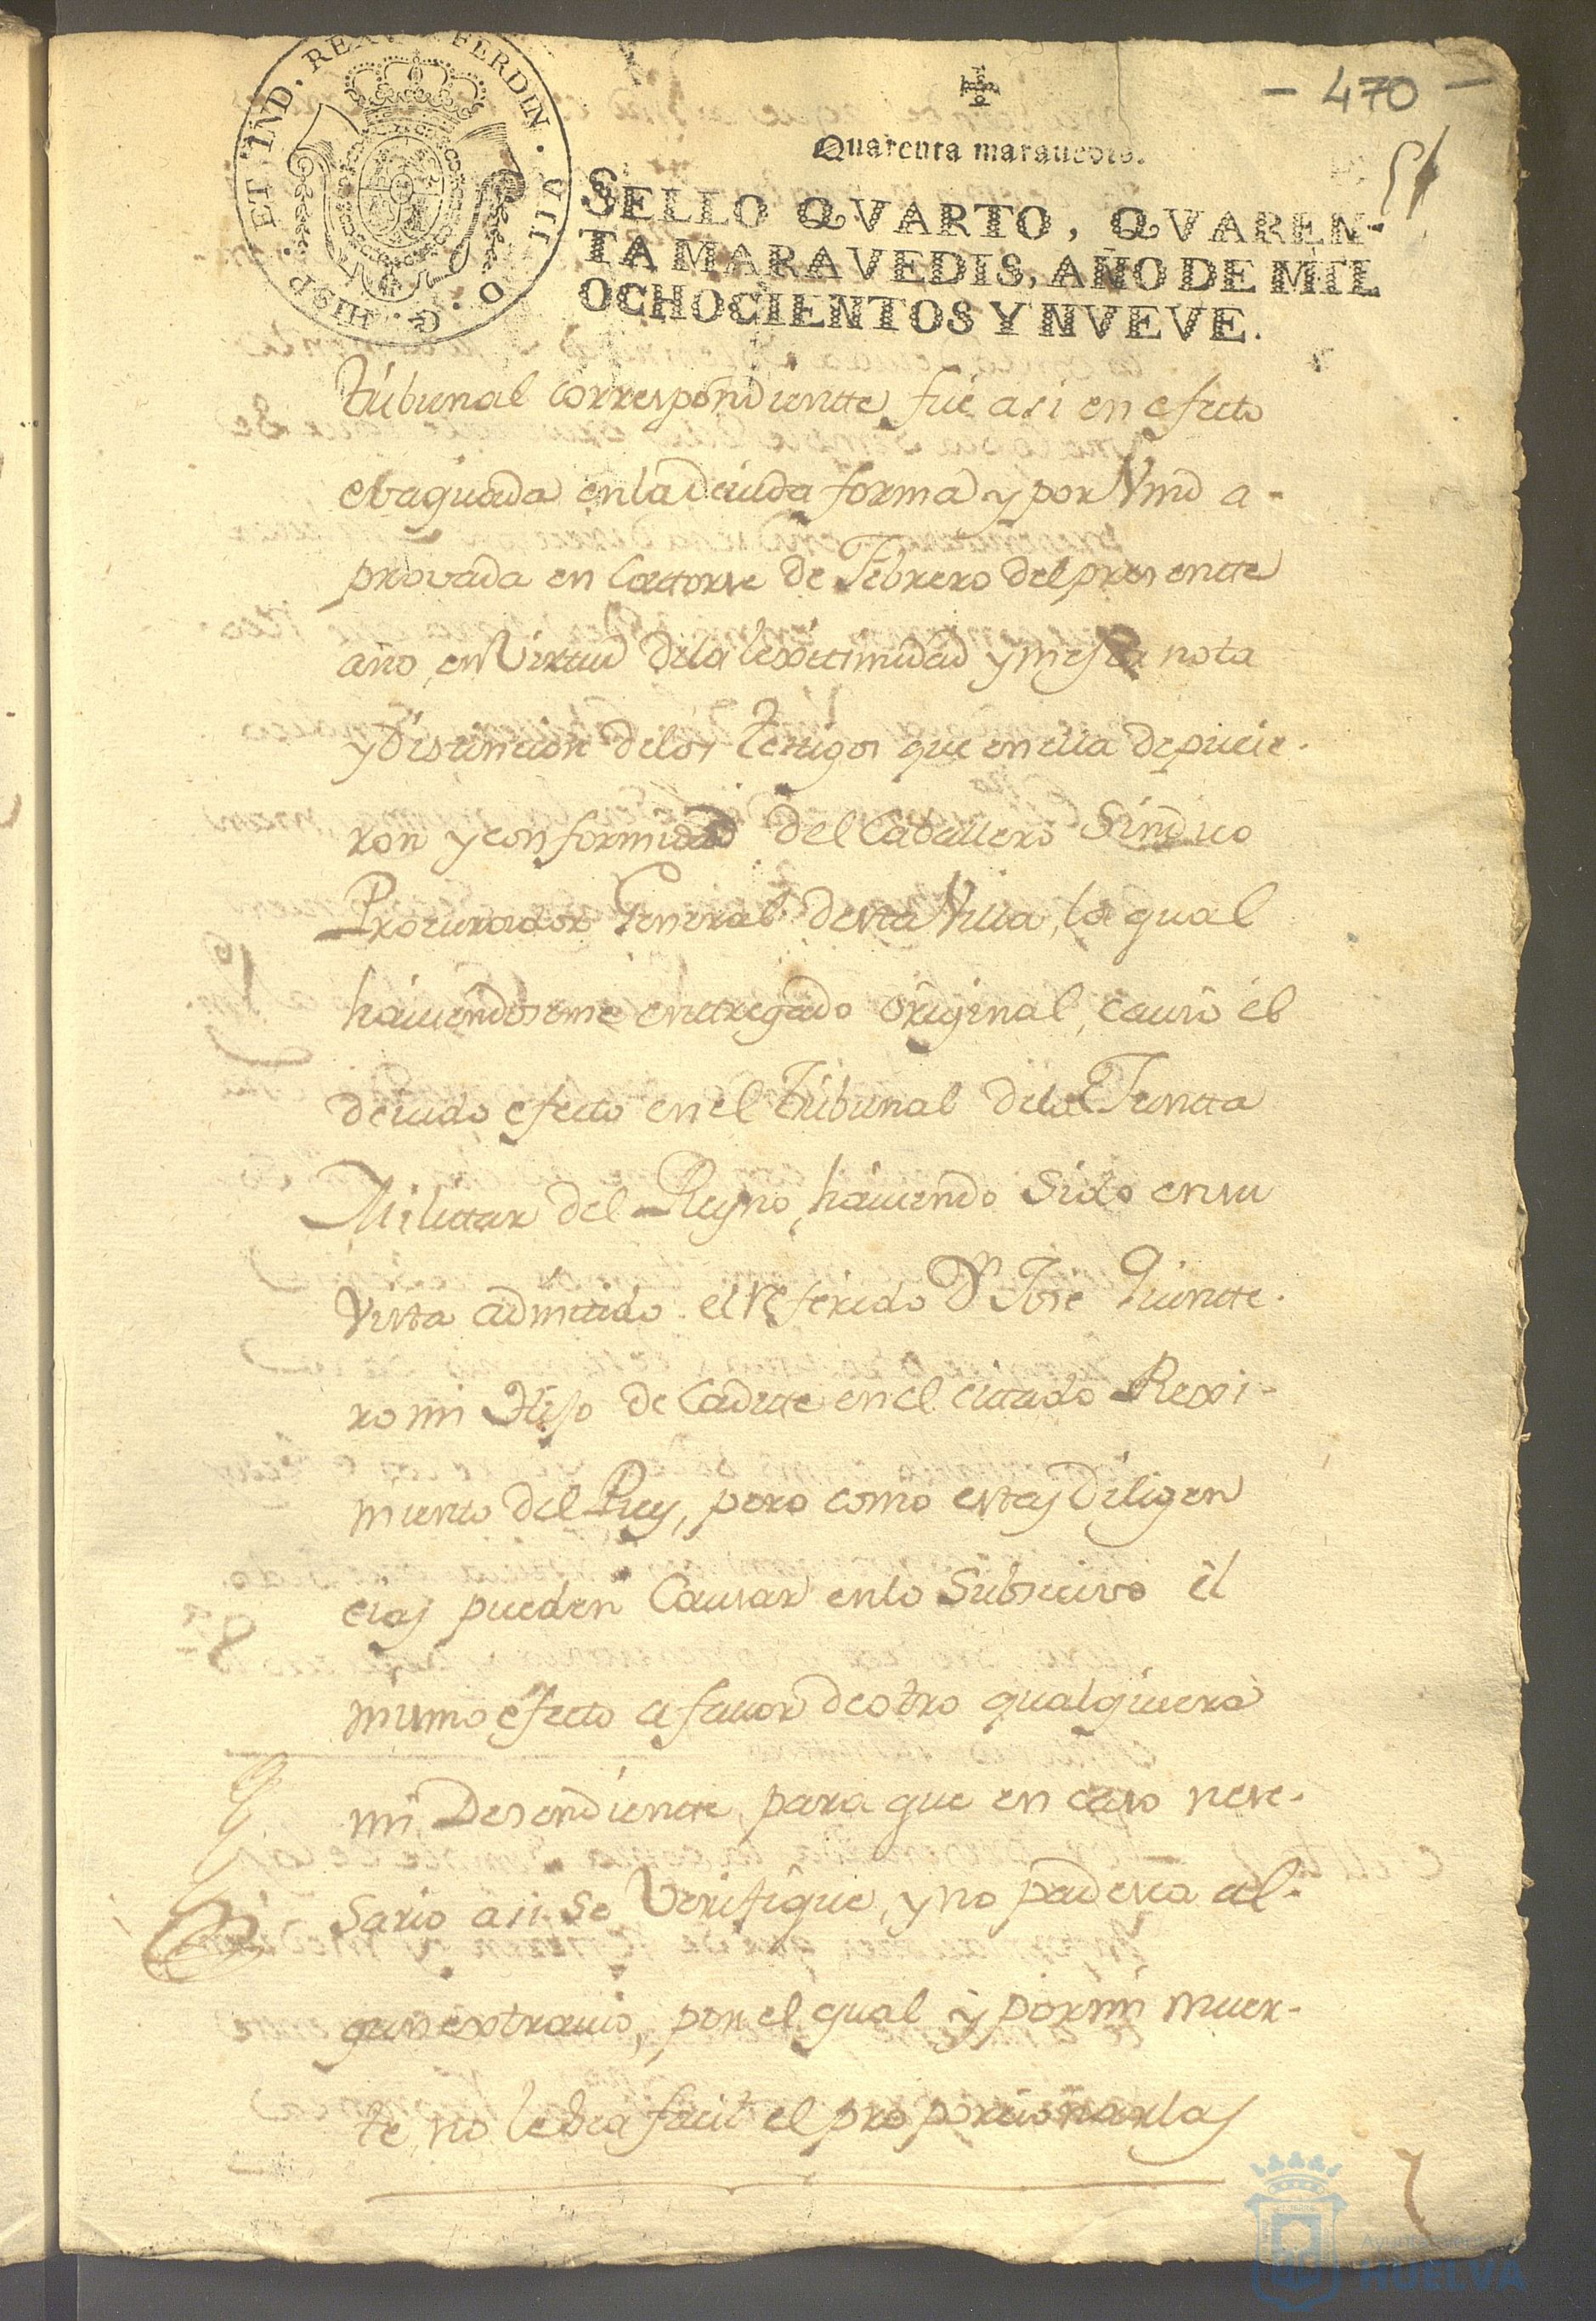 - 470 -
51
Quarenta maravedis.
SELLO QVARTO, QVAREN-
TA MARAVEDIS, AÑO DE MIL
OCHOCIENTOS Y NVEVE.
HISP. ET IND. REX FERDIN. VII D. G.
tribunal correspondientte, fué asi en efecto
ebaquada en la deuida forma y por Vmd a-
provada en Cattorse de Febrero del presentte
año, en Virtud de la lexitimidad y mejor nota
y Distincion de los Testigos que en ella depucie-
ron y conformidad del Caballero Sindico
Procurador General desta Villa, la qual
hauiendoseme enttregado original, causó el
deuido efecto en el Tribunal de la Juntta
Milittar del Reyno, hauiendo Sido en su
Vista admitido el referido Dn Jose Quintte-
ro mi Hijo de Cadette en el citado Rexi-
miento del Rey, pero como estas Diligen
cias pueden Causar en lo Subsecivo el
mismo efecto a fauor de otro qualquiera
mi Desendientte, para que en caso nese-
Sario asi se Verifique, y no padesca al-
gun extrauio, por el qual y por mi muer-
te, no le sea facil el proporcionarlas
Ayuntamiento de
HUELVA